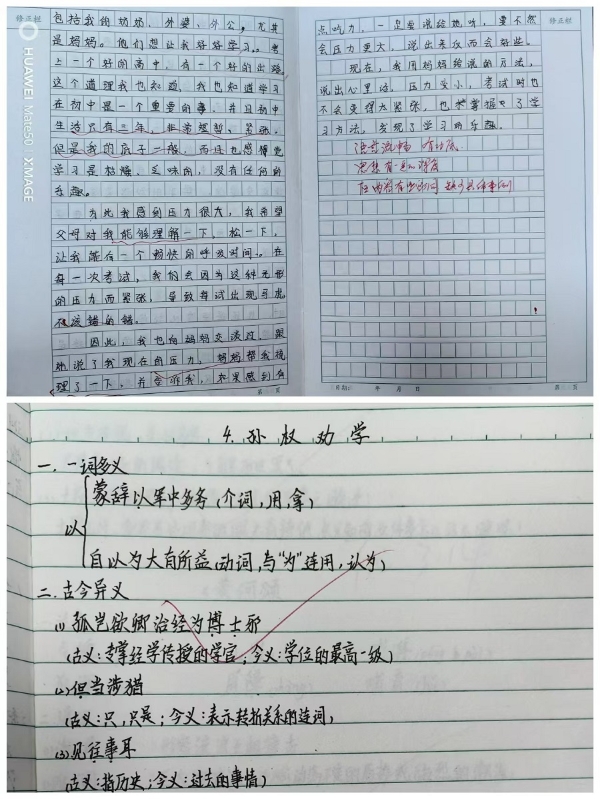 修正栏
包括我的奶奶、外婆、外公，尤其
是妈妈。他们想让我好好学习，考
上一个好的高中，有一个好的出路。
这个道理我也知道，我也知道学习
在初中是一个重要的事，并且初中
生活只有三年，非常短暂、紧张。
但是我的底子一般，而且也感觉觉
学习是枯燥、乏味的，没有任何的
乐趣。
为此我感到压力很大，我希望
父母对我能够理解一下，松一下，
让我能有一个畅快的呼吸时间。在
每一次考试，我们会因为这种无形
的压力而紧张，导致考试出现马虎
不该错的错。
因此，我也向妈妈交谈过，跟
她说了我现在的压力，妈妈帮我梳
理了一下，并告诉我，如果感到有
HUAWEI Mate50
XMAGE
修正栏
点吃力，一定要说给她听，要不然
会压力更大，说出来反而会好些。
现在，我用妈妈给说的方法，
说出心里话，压力变小，考试时也
不会变得太紧张，也掌握了学
习方法，发现了学习的乐趣。
语言流畅
日期：
年 月 日
4.孙权劝学
一.一词多义
以
蒙辞以军中多务（介词，用，拿）
自以为大有所益（动词，与“为”连用，认为）
二.古今异义
(1)孤岂欲卿治经为博士邪
(古义:专掌经学传授的学官；今义:学位的最高一级)
(2)但当涉猎
(古义:只，只是；今义:表示转折关系的连词)
(3)见往事耳
(古义:指历史；今义:过去的事情)